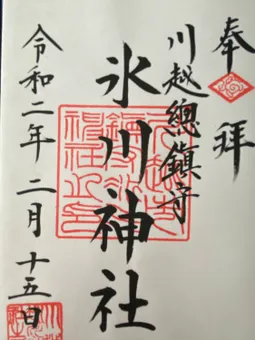 奉拝
川越總鎮守
氷川神社
令和二年二月十五日